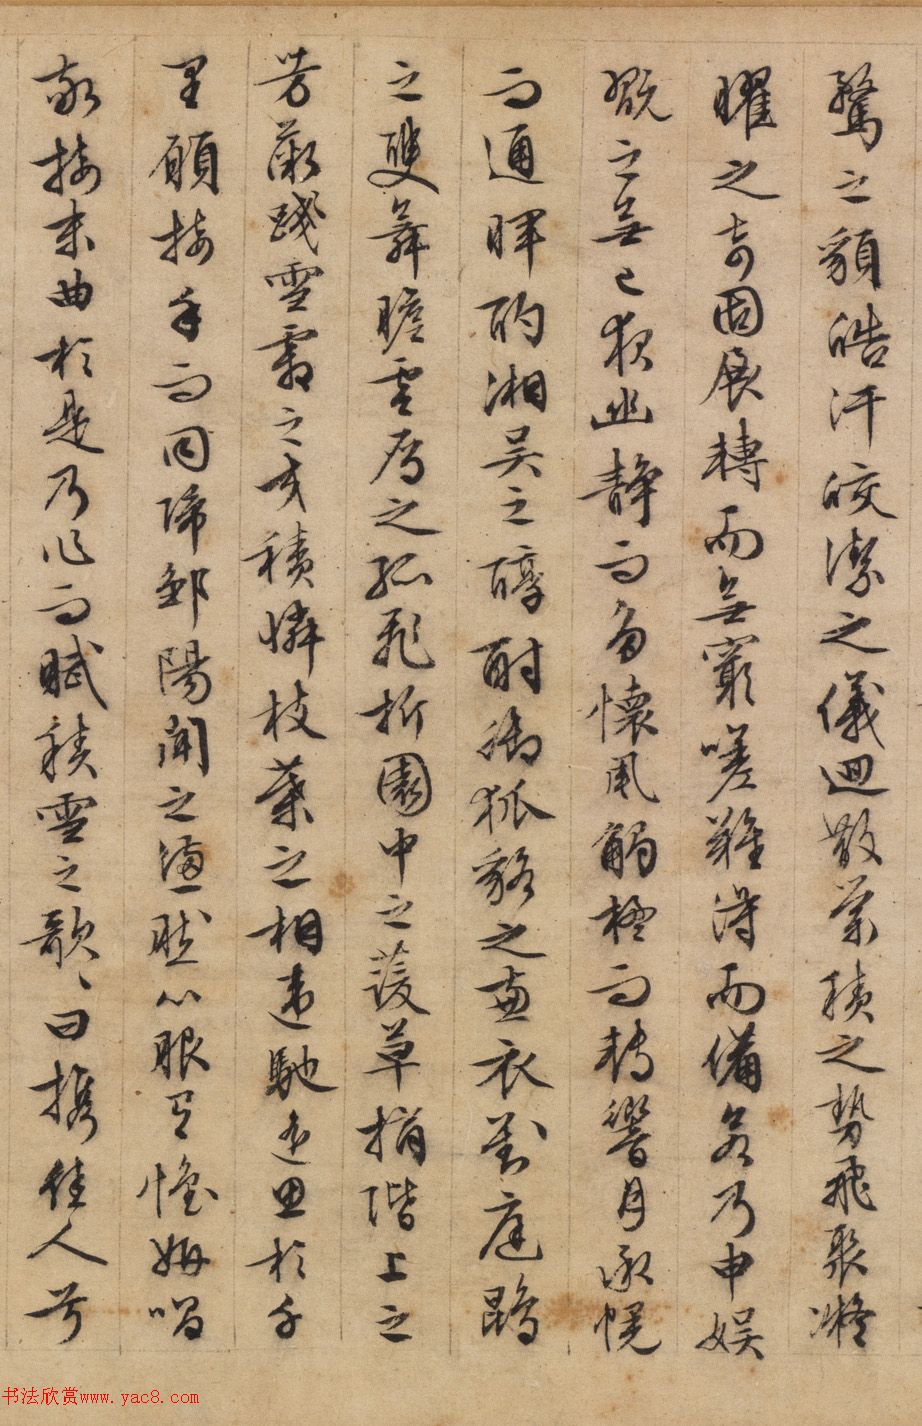 騖之貌皓汗皎潔之儀迴散縈積之勢飛聚凝
曜之奇固展轉而無窮嗟難得而備若乃申娛
翫之無已夜幽靜而多懷風觸楹而轉響月承幌
而通暉酌湘吳之醇酎御狐貉之兼衣對庭鵾
之雙舞瞻雲雁之孤飛折園中之萲草摘階上之
芳薇踐雪霜之交積憐枝葉之相違馳遙思於千
里願接手而同歸鄒陽聞之懣然心服有懷妍唱
敬接末曲於是乃作而賦積雪之歌々曰攜佳人兮
书法欣赏www.yac8.com